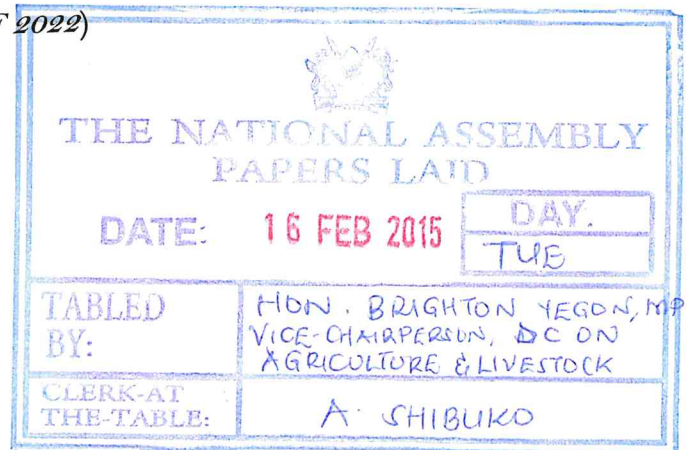 F 2022)
THE NATIONAL ASSEMBLY
PAPERS LAID
DATE: 16 FEB 2015
DAY.
TUE
TABLED BY:
HON. BRIGHTON YEGON, MP
VICE-CHAIRPERSON, DC ON
AGRICULTURE & LIVESTOCK
CLERK-AT THE-TABLE:
A. SHIBUKO